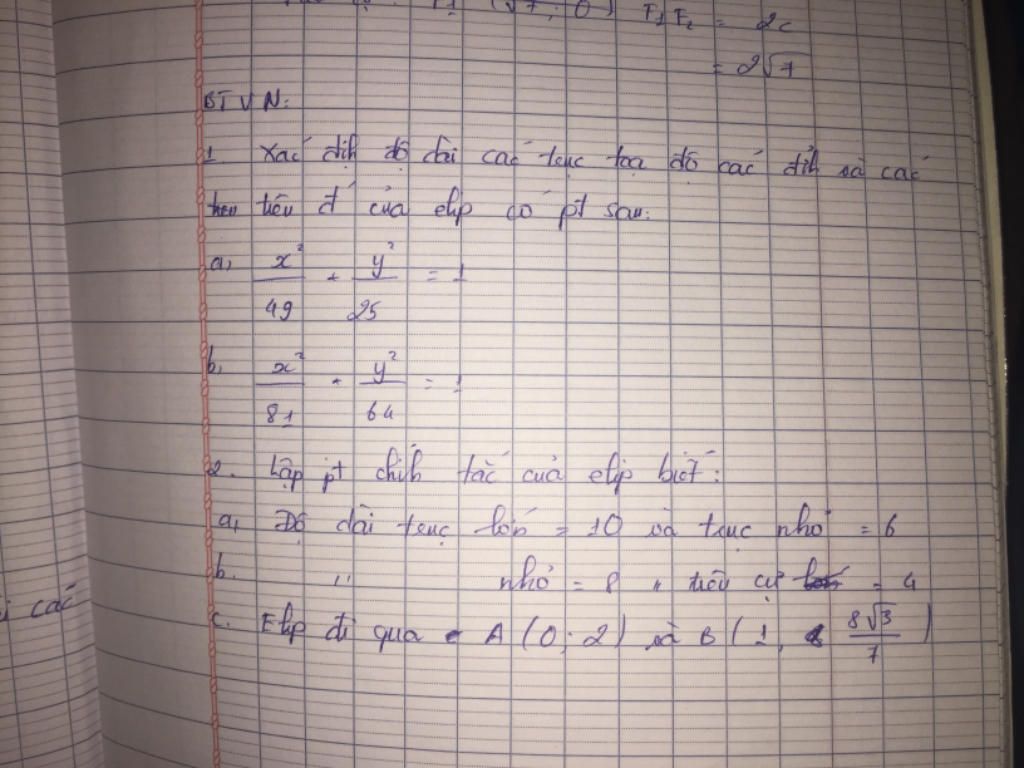 F₁ (√7 ; 0) F₁F₂ = 2c
= 2√7
BTVN:
1. Xác địh độ dài các trục toạ độ các đỉh và các
tiêu đ của elip có pt sau:
a, x²/49 + y²/25 = 1
b, x²/81 + y²/64 = 1
2. Lập pt chíh tắc của elip biết:
a, Độ dài trục lớn = 10 và trục nhỏ = 6
b. '' nhỏ = 8 '' tiêu cự = 4
c. Elip đi qua A (0 ; 2) và B (1, 8√3/7)
các